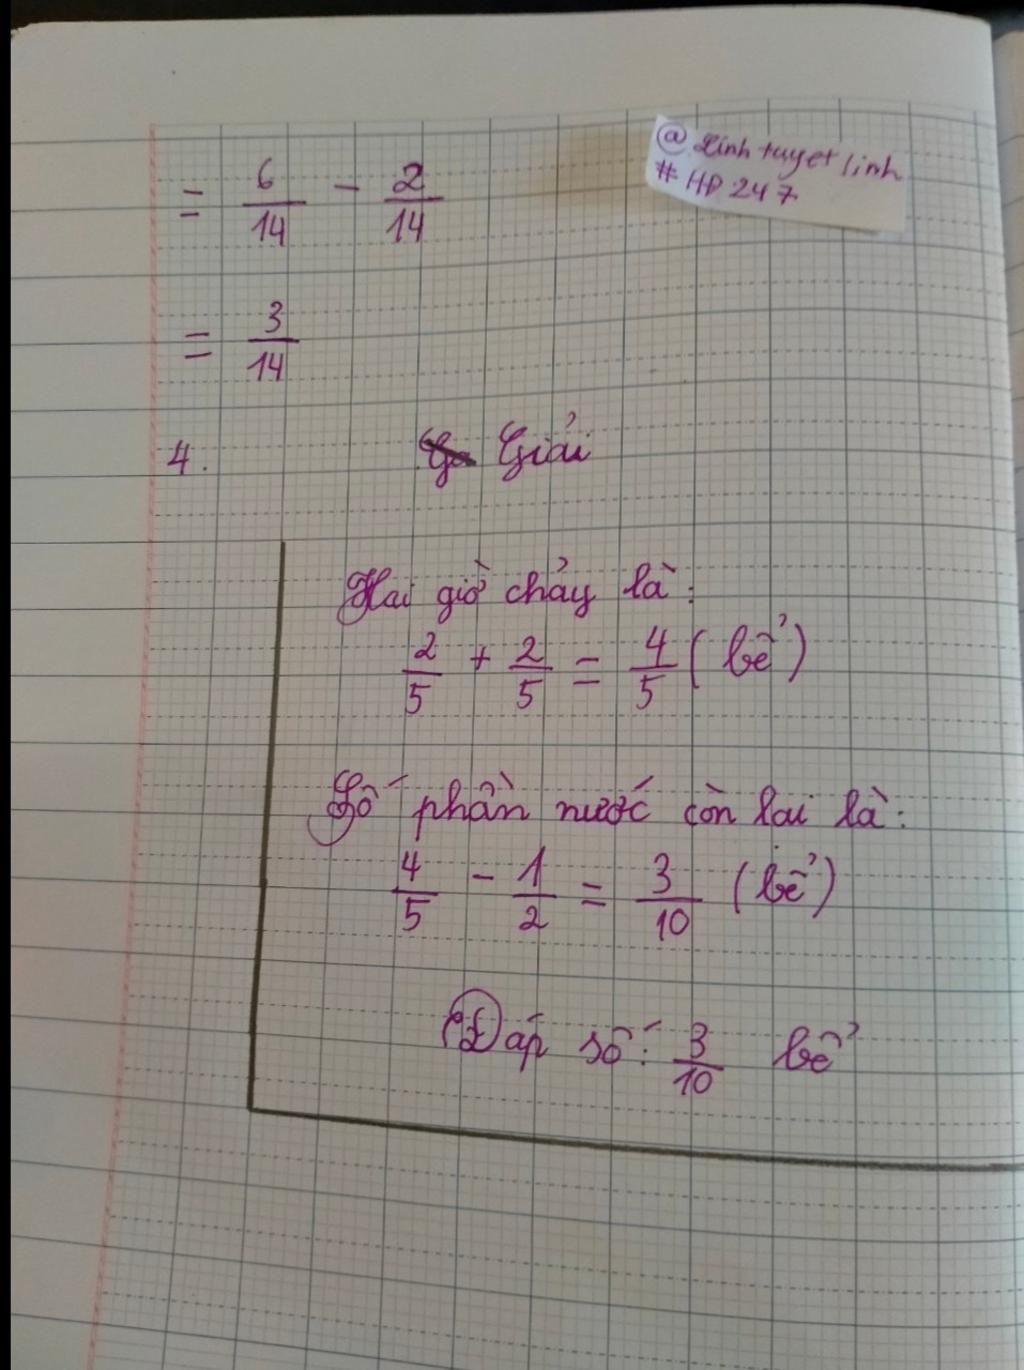 @ Linh tuyet linh
# HD 247
= 6/14 - 2/14
= 3/14
4. Giải
Hai giờ chảy là:
2/5 + 2/5 = 4/5 (bể)
Số phần nước còn lại là:
4/5 - 1/2 = 3/10 (bể)
Đáp số: 3/10 bể